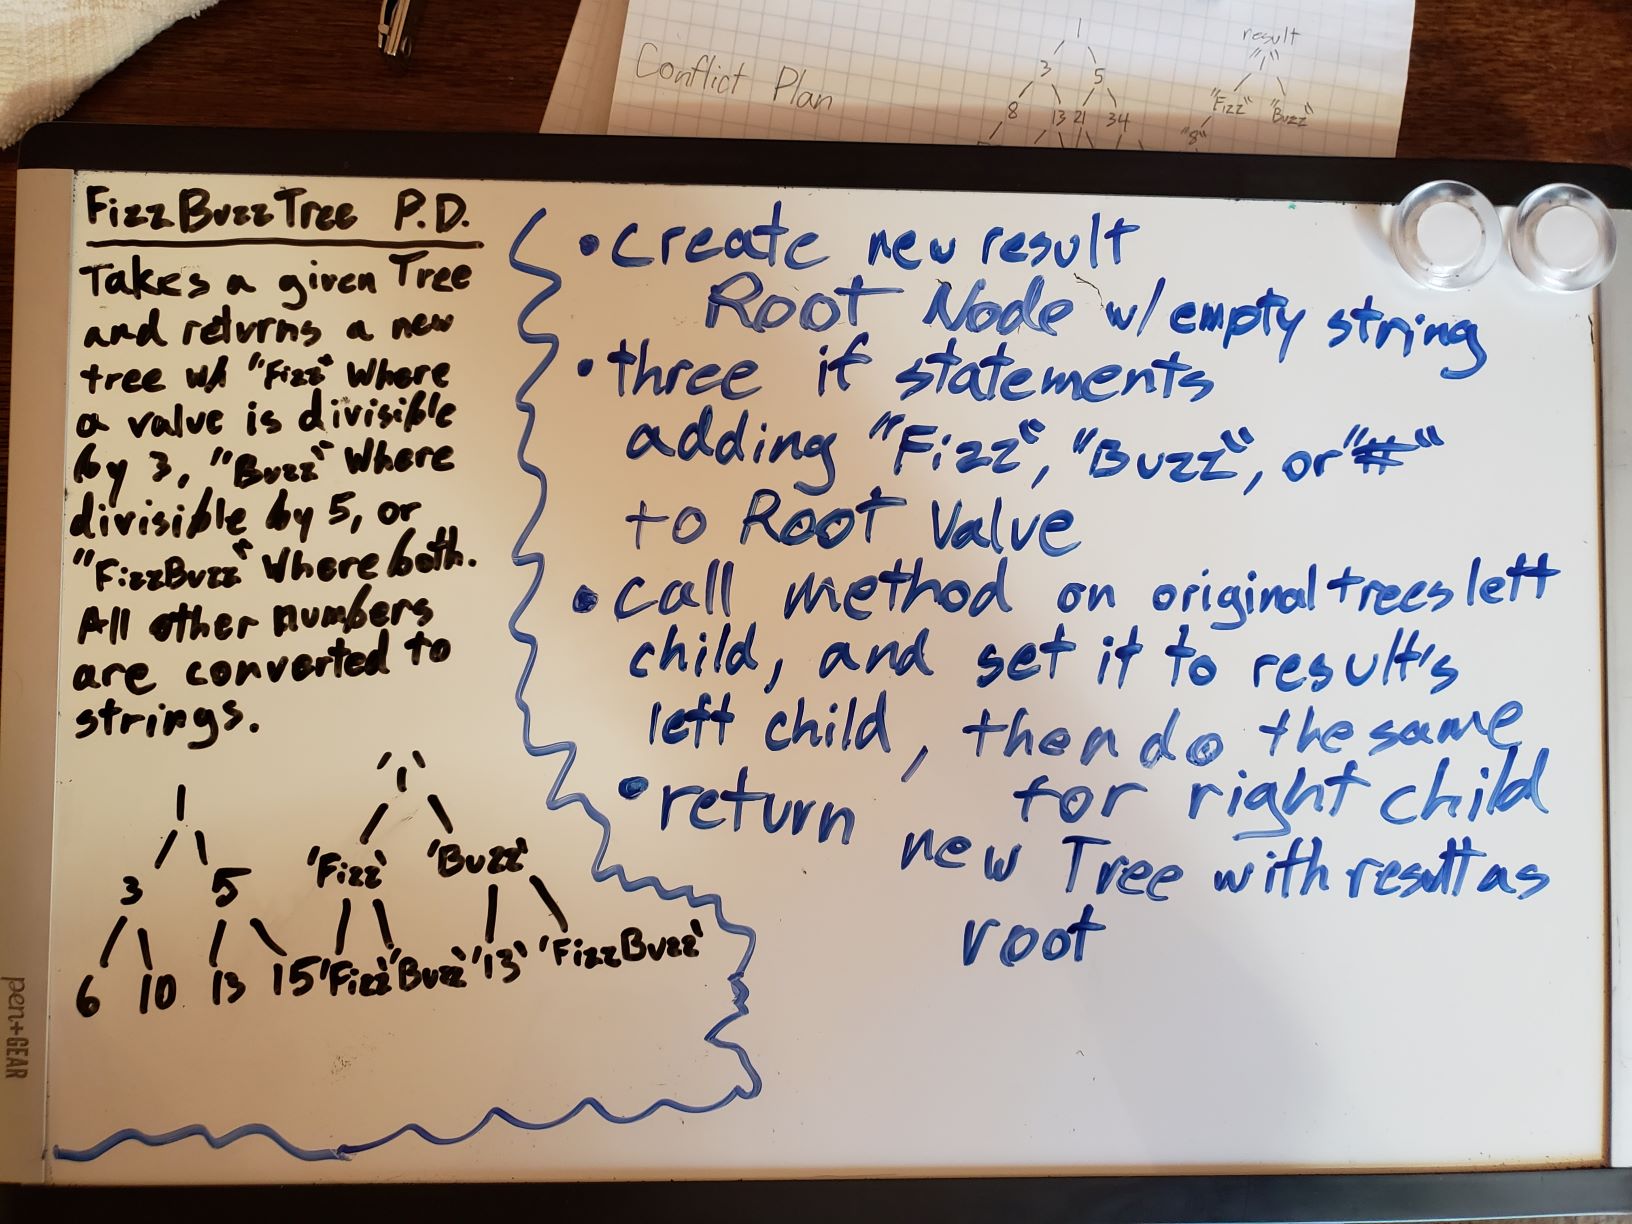 Conflict Plan
1
3 5
8 13 21 34
result
""
"Fizz" "Buzz"
"8"
FizzBuzzTree P.D.
Takes a given Tree
and returns a new
tree w/ "Fizz" Where
a value is divisible
by 3, "Buzz" Where
divisible by 5, or
"FizzBuzz" Where both.
All other numbers
are converted to
strings.
1
3 5
6 10 13 15
'1'
'Fizz' 'Buzz'
'Fizz' 'Buzz' '13' 'FizzBuzz'
• create new result
Root Node w/ empty string
• three if statements
adding "Fizz", "Buzz", or "#"
to Root Value
• call method on original trees left
child, and set it to result's
left child, then do the same
for right child
• return new Tree with result as
root
pen+GEAR